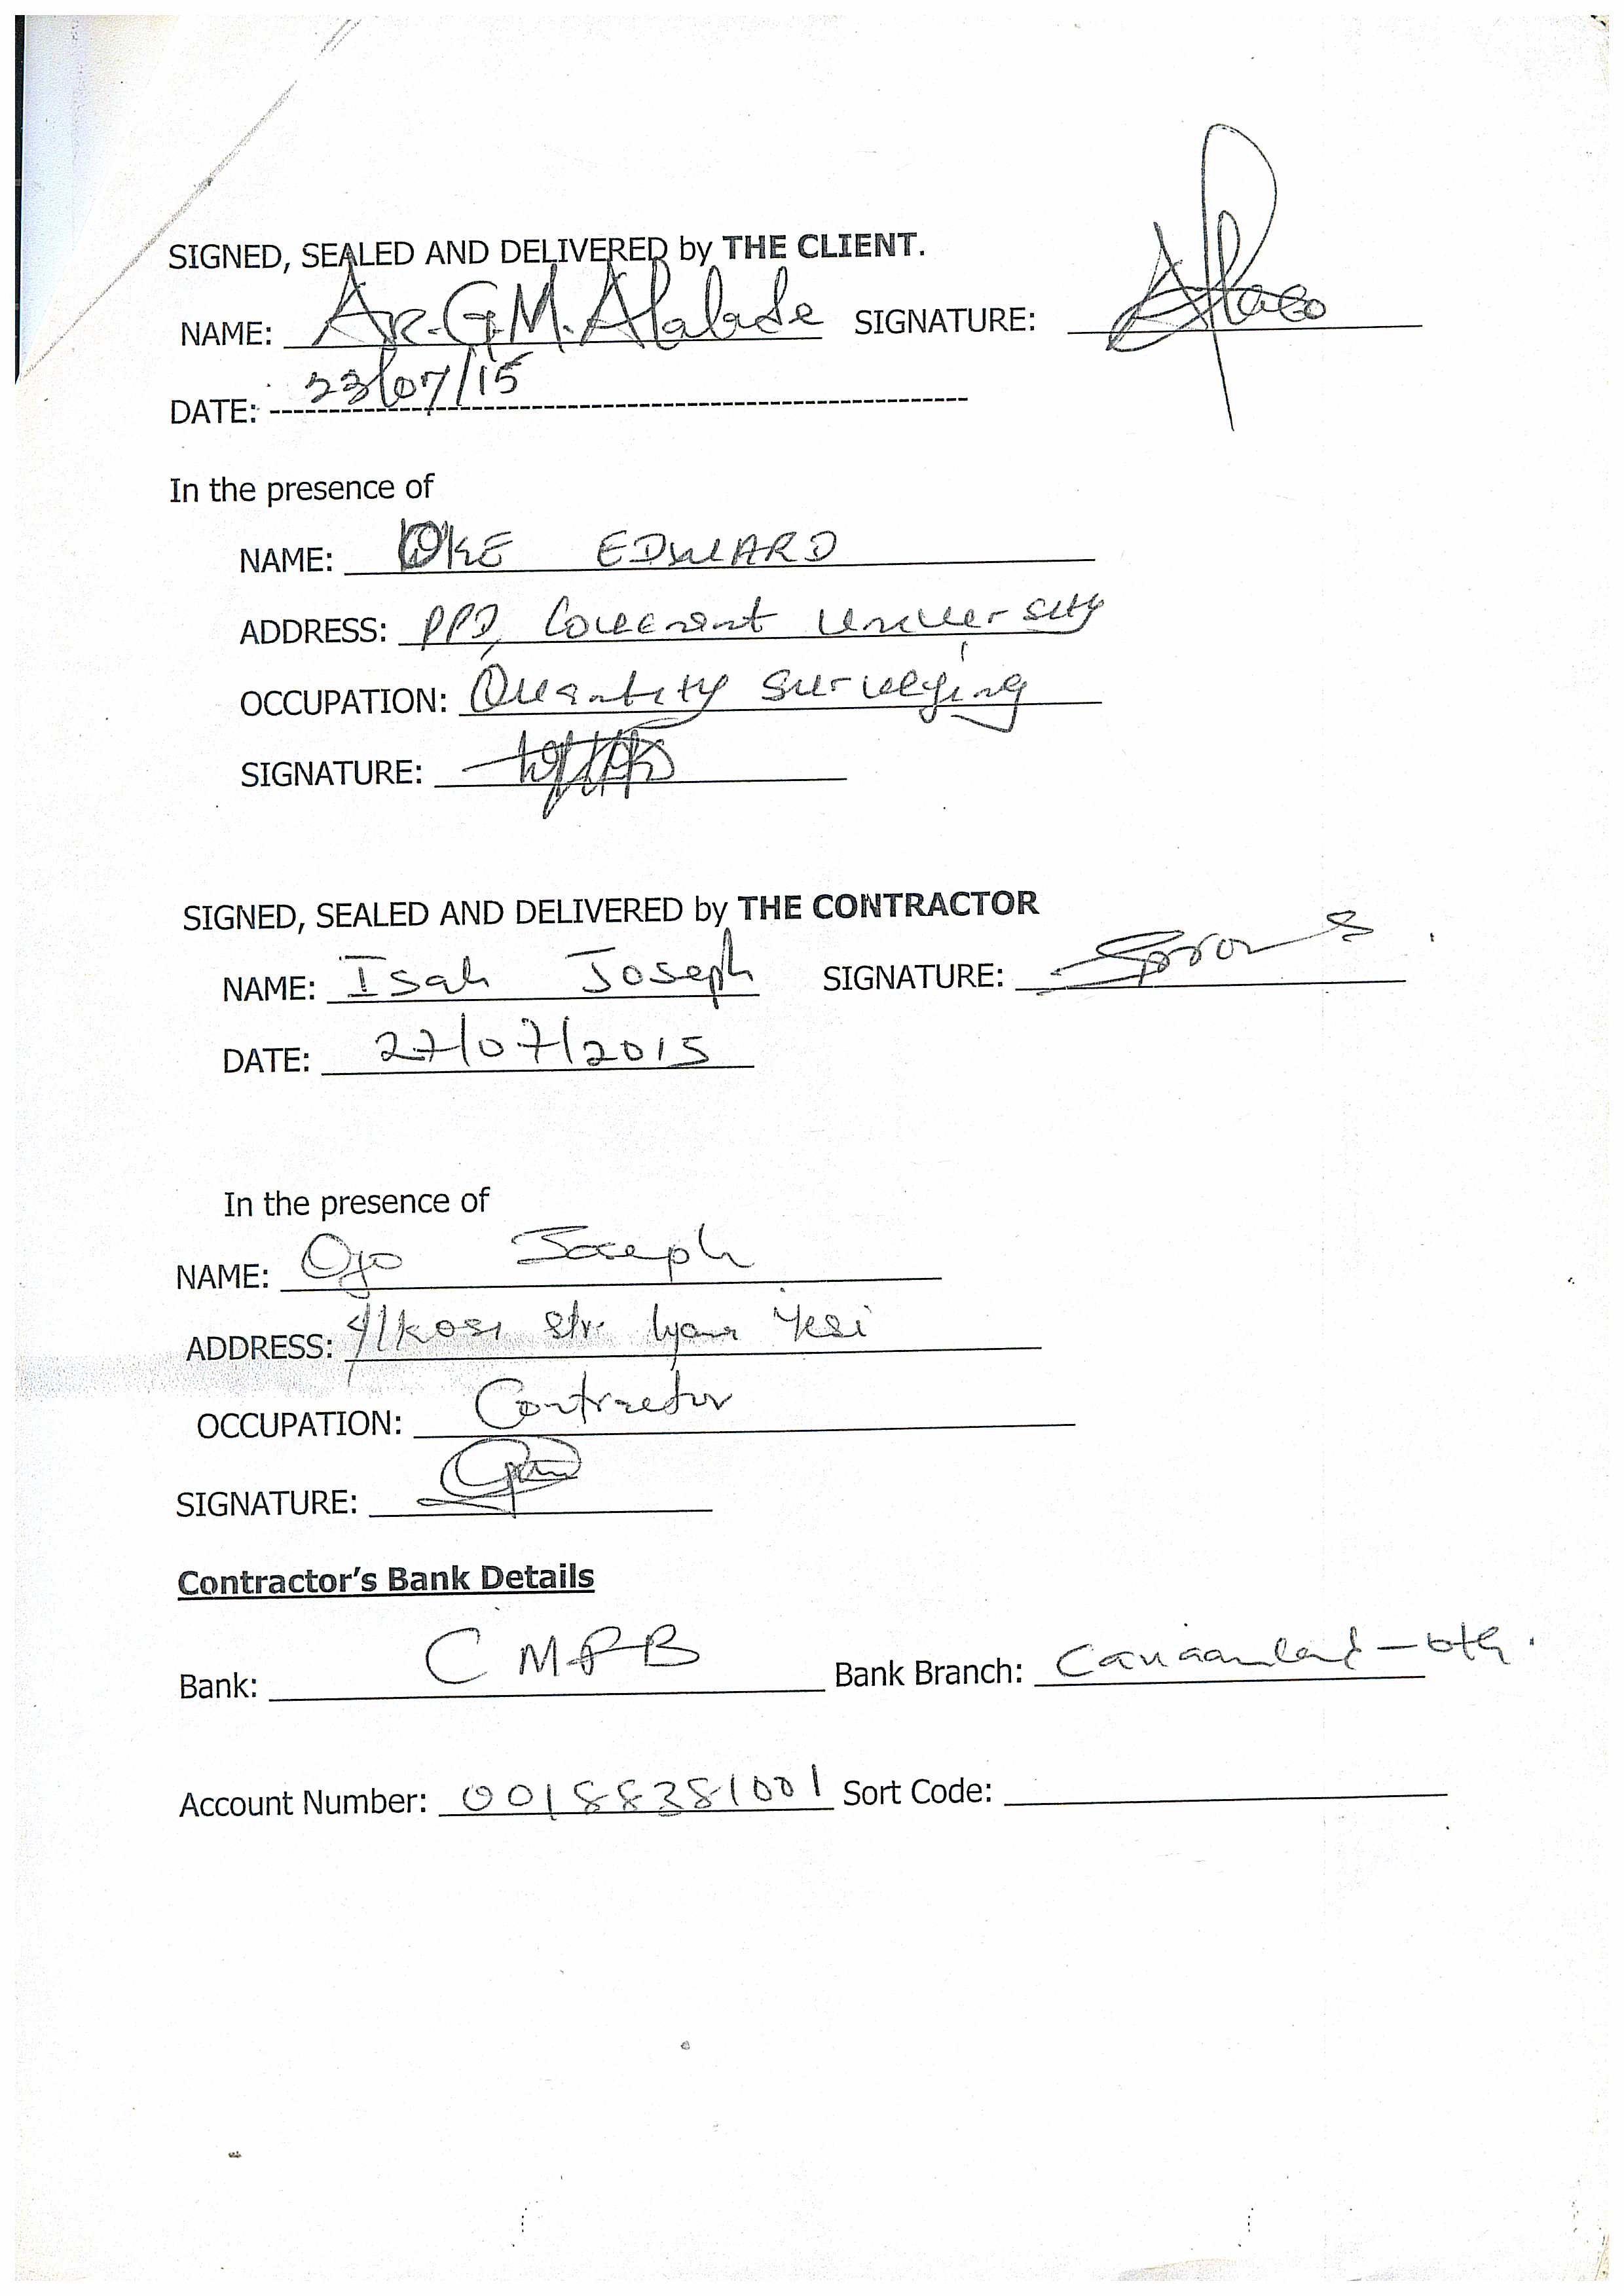 SIGNED, SEALED AND DELIVERED by THE CLIENT.
NAME: Ar. G.M. Alabade SIGNATURE:
DATE: 23/07/15
In the presence of
NAME: OKE EDWARD
ADDRESS: PPD, Covenant University
OCCUPATION: Quantity Surveying
SIGNATURE:
SIGNED, SEALED AND DELIVERED by THE CONTRACTOR
NAME: Isah Joseph SIGNATURE:
DATE: 27/07/2015
In the presence of
NAME: Ojo Joseph
ADDRESS: str. Iyana Yesi
OCCUPATION: Contractor
SIGNATURE:
Contractor's Bank Details
Bank: CMFB Bank Branch: Canaanland - ota.
Account Number: 00188381001 Sort Code: